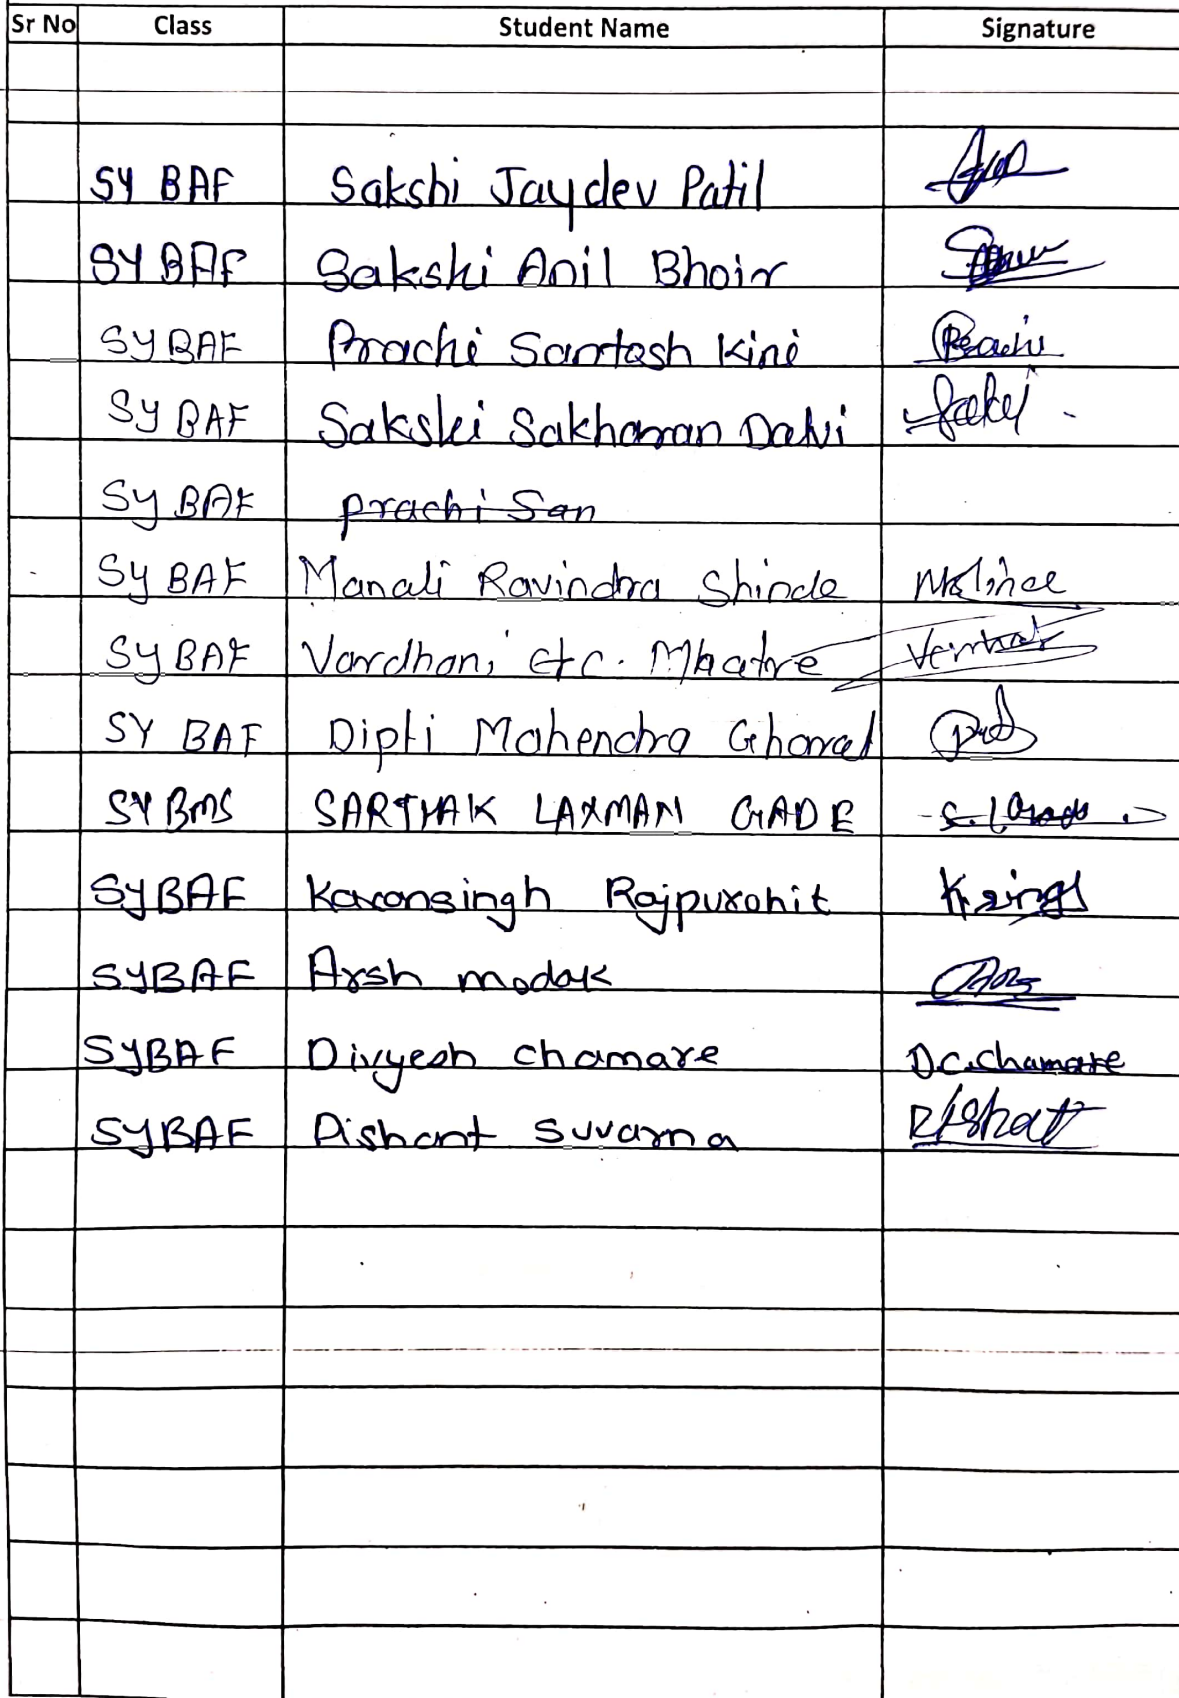 Sr No Class Student Name Signature
SY BAF Sakshi Jaydev Patil
SY BAF Sakshi Anil Bhoir
SY BAF Prachi Santosh Kini Prachi
SY BAF Sakshi Sakharam Dalvi
SY BAF Prachi San
SY BAF Manali Ravindra Shinde
SY BAF Mhatre
SY BAF Dipti Mahendra Gharat
SY BMS SARTHAK LAXMAN GADE
SYBAF Karansingh Rajpurohit
SYBAF Arsh modak
SYBAF Divyesh chamare D.C.Chamare
SYBAF Dishant suvarna